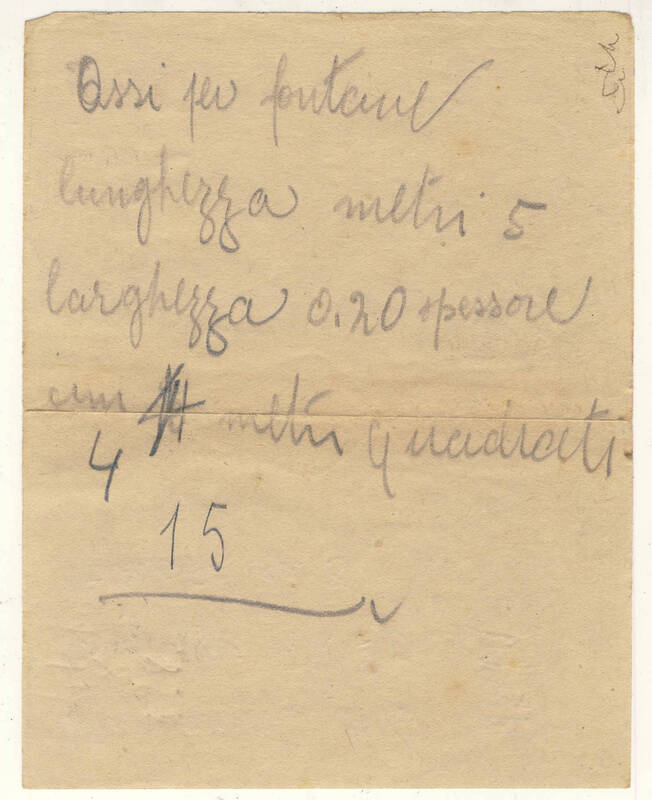 Assi per fontane
lunghezza metri 5
larghezza 0.20 spessore
cm 4 metri quadrati
4
15